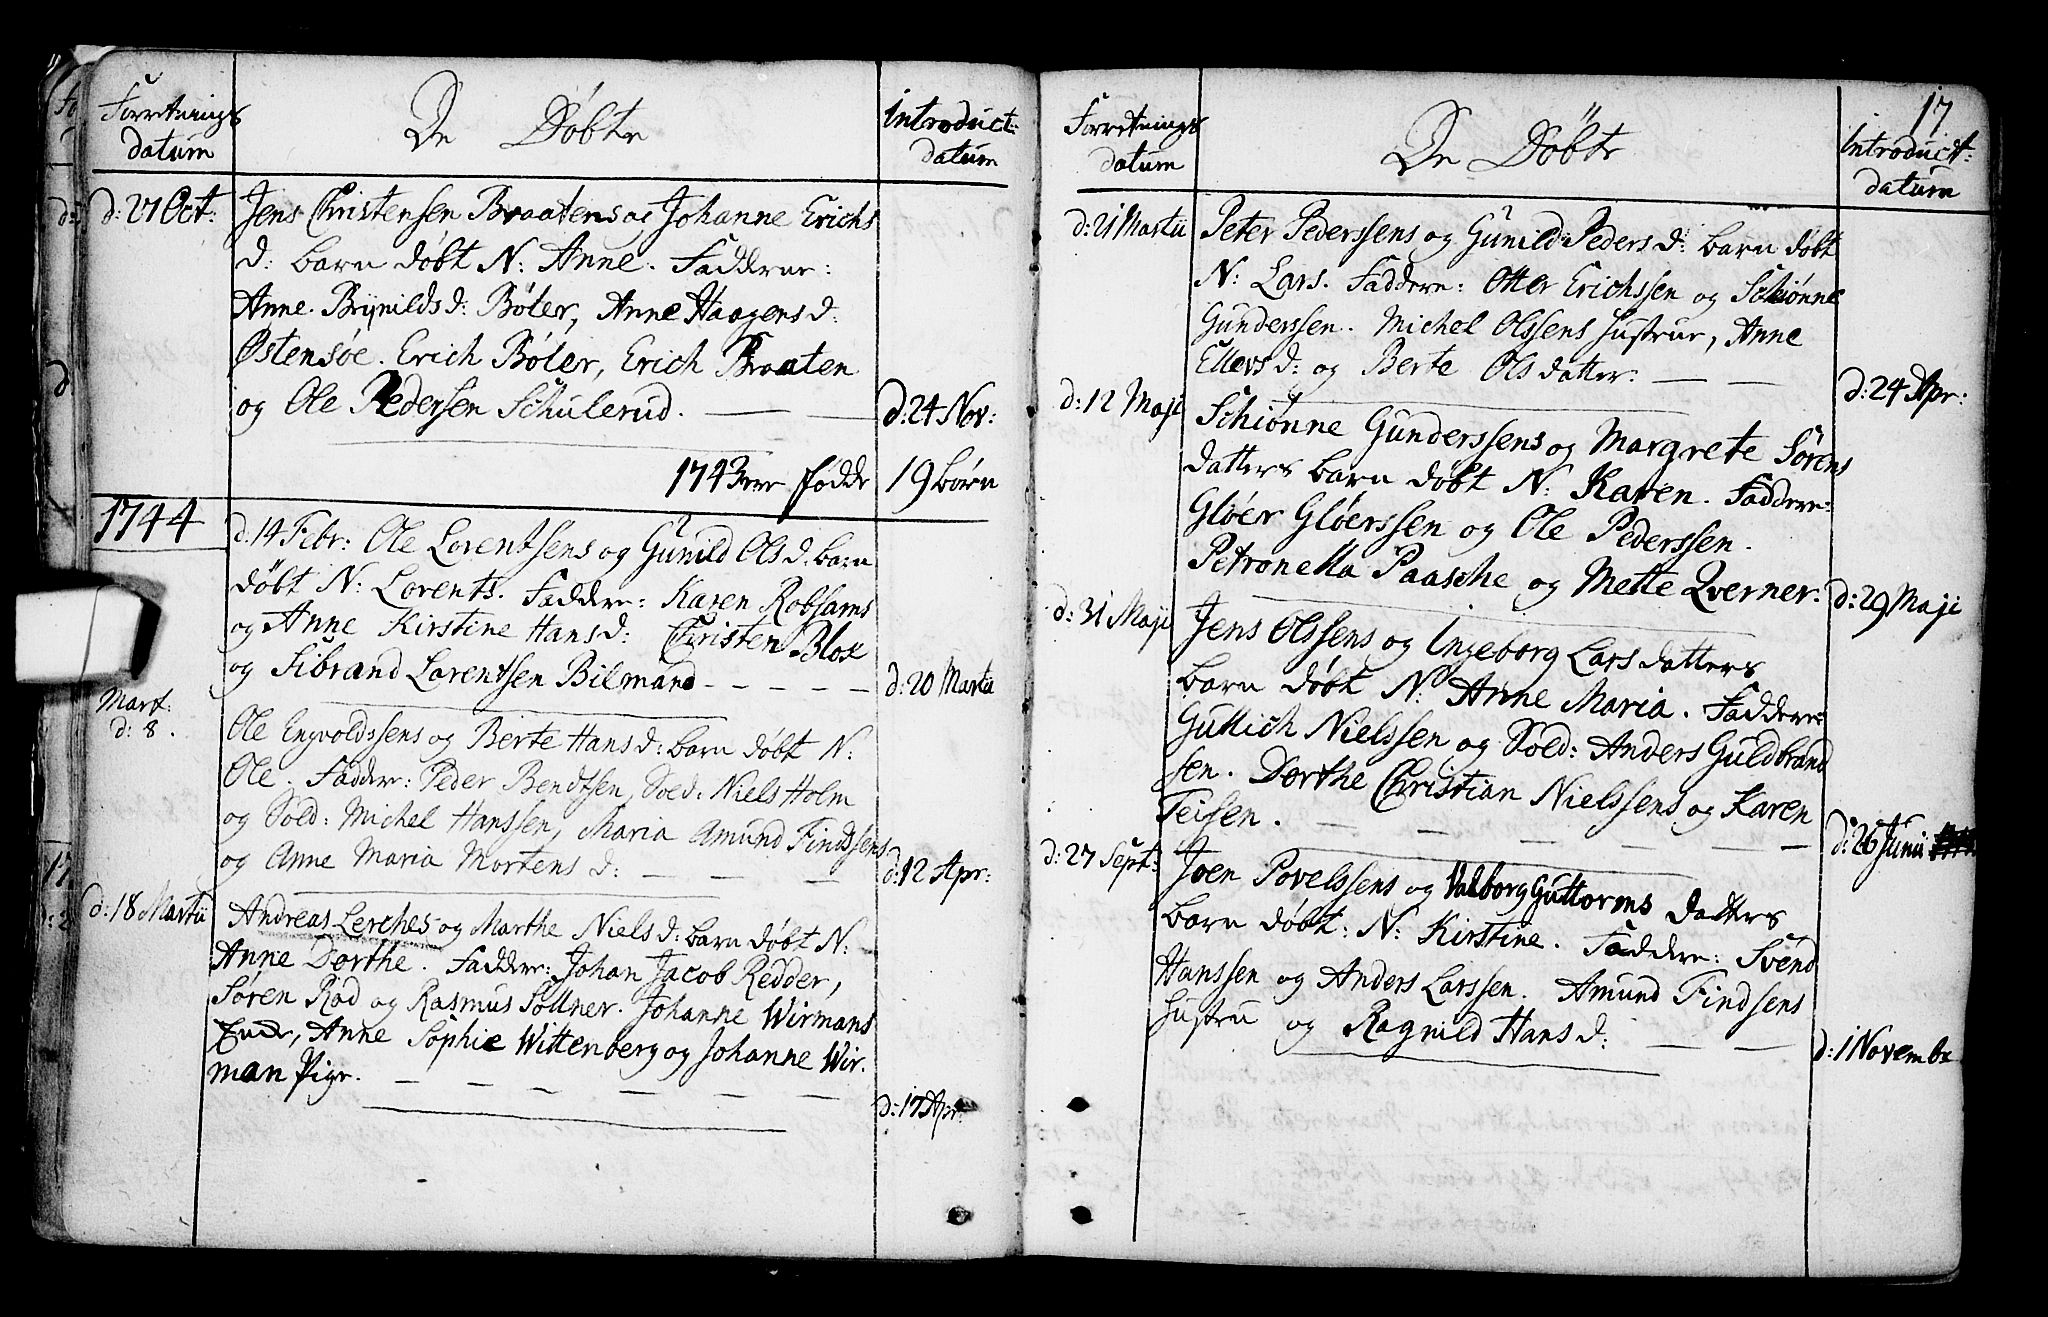 Forretnings
datum
De Døbte
Introduct:
datum
d: 27 Oct:
Jens Christensen Braatens og Johanne Erichs
d: barn døbt N: Anne. Faddere:
Anne Brynilds d: Bøler, Anne Haagens d:
Østensøe. Erich Bøler, Erich Braaten
og Ole Pedersen Schulerud. — —
d: 24 Nov:
1743 ere fødde 19 børn
1744
d. 14 Febr: Ole Lorentsens og Gunild Ols d: barn
døbt N: Lorents. Faddere: Karen Robsams
og Anne Kirstine Hans d: Christen Blox
og Sibrand Lorentsen Bilmand — — — — —
d: 20 Martii
Mart:
d: 8.
Ole Engvoldssens og Berte Hans d: barn døbt N:
Ole. Faddere: Peder Bendtsen, Sold: Niels Holm
og Sold: Michel Hanssen, Maria Amund Findssens
og Anne Maria Mortens d: — — —
d: 12 Apr:
d: 18 Martii
Andreas Lerches og Marthe Niels d: barn døbt N:
Anne Dorthe. Faddere: Johan Jacob Redder,
Søren Rød og Rasmus Søllner. Johanne Wirmans
Anne Sophie Wittenberg og Johanne Wir-
man Pige. — — — — — —
d: 17 Apr:
17
Forretnings
datum
De Døbte
Introduct:
datum
d: 21 Martii
Peter Pederssens og Gunild Peders d: barn døbt
N: Lars. Faddere: Otter Erichssen og Schiønne
Gunderssen. Michel Olssens hustrue, Anne
Ellevs d: og Berte Olsdatter: — —
d: 24 Apr:
d: 12 Maji
Schiønne Gunderssens og Margrete Sørens
datters barn døbt N: Karen. Faddere:
Gløer Gløerssen og Ole Pederssen.
Petronella Paasche og Mette Qverner.
d: 29 Maji
d: 31 Maji
Jens Olssens og Ingeborg Lars datters
barn døbt N: Anne Maria. Faddere:
Gullich Nielssen og Sold: Anders Guldbrand
sen. Dorthe Christian Nielssens og Karen
Teisen. — — — — —
d: 26 Junii
d: 27 Sept:
Joen Povelssens og Valborg Guttorms datters
barn døbt: N: Kirstine. Faddere: Svend
Hanssen og Anders Larssen. Amund Findsens
hustru og Ragnild Hans d: — —
d: 1 Novembr